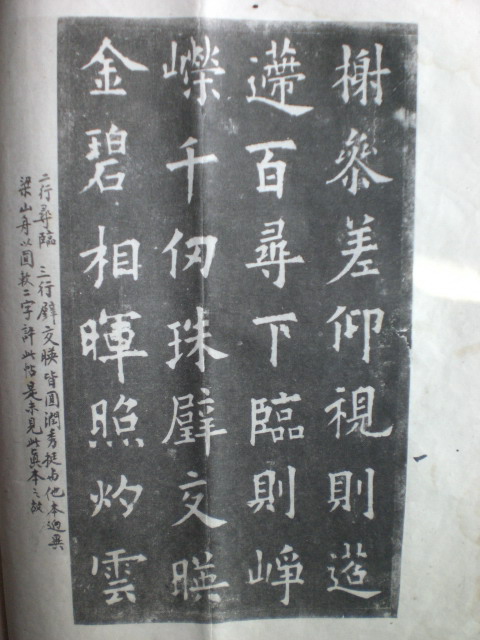 榭叅差仰視則迢
遰百尋下臨則崢
嶸千仞珠璧交暎
金碧相暉照灼雲
二行尋臨 三行璧交暎皆圓潤秀挺与他本迥異
梁山舟以圓軟二字評此帖是未見此真本之故